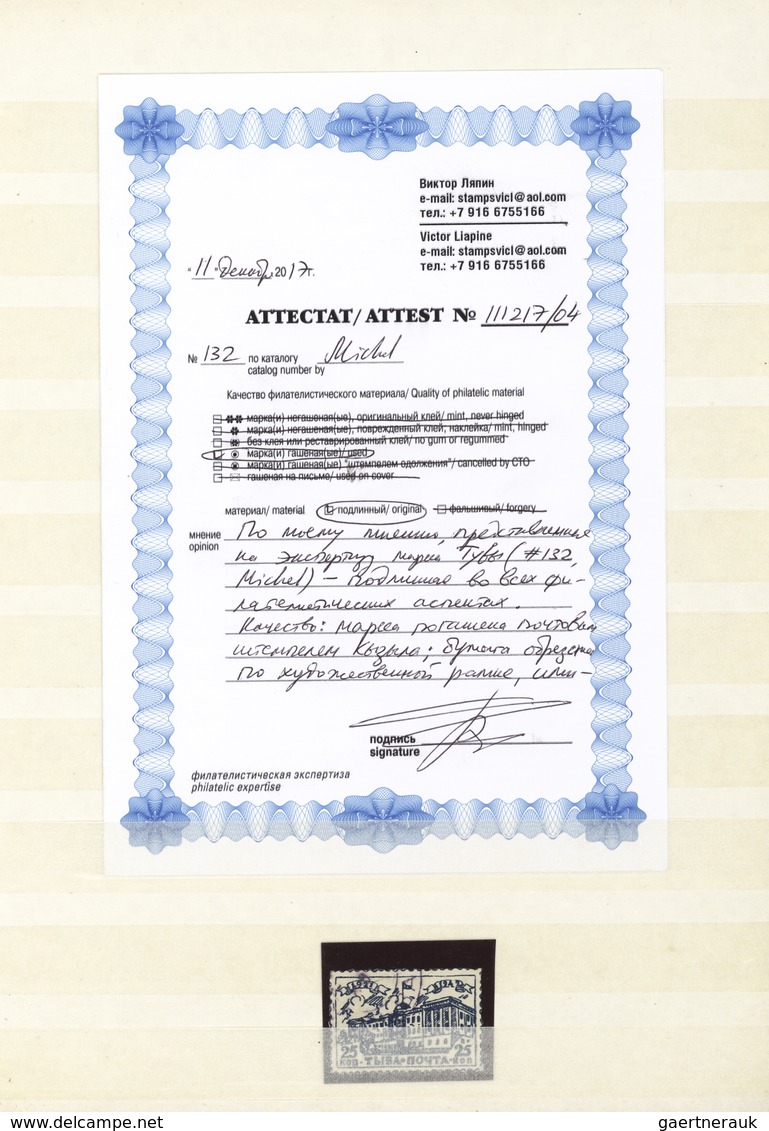 Виктор Ляпин
e-mail: stampsvicl@aol.com
тел.: +7 916 6755166
Victor Liapine
e-mail: stampsvicl@aol.com
тел.: +7 916 6755166
"11" декабр. 2017г.
АТТЕСТАТ/ ATTEST № 111217/04
№ 132 по каталогу Michel
catalog number by
Качество филателистического материала/ Quality of philatelic material
марка(и) негашеная(ые), оригинальный клей/ mint, never hinged
марка(и) негашеная(ые), поврежденный клей, наклейка/ mint, hinged
без клея или реставрированный клей/ no gum or regummed
марка(и) гашеная(ые)/ used
марка(и) гашеная(ые) "штемпелем одолжения"/ cancelled by CTO
гашеная на письме/ used on cover
материал/ material подлинный/ original фальшивый/ forgery
мнение По моему мнению, представленная
opinion на экспертизу марка Тувы (#132,
Michel) – подлинная во всех фи-
лателистических аспектах.
Качество: марка погашена почтовым
штемпелем Кызыла; бумага обрезана
по художественной рамке, или-
подпись
signature
филателистическая экспертиза
philatelic expertise
1921 1942
25 25
коп ТЫВА ПОЧТА коп
gaertnerauk